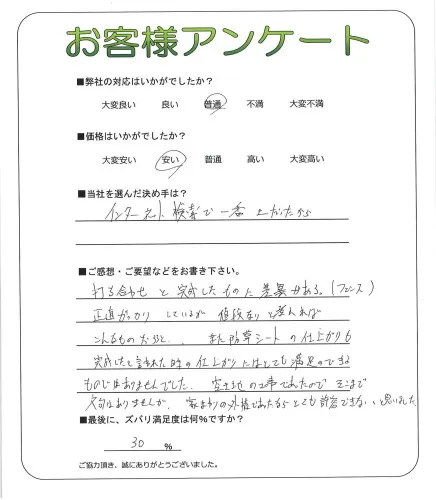 お客様アンケート
■弊社の対応はいかがでしたか?
大変良い 良い 普通 不満 大変不満
■価格はいかがでしたか?
大変安い 安い 普通 高い 大変高い
■当社を選んだ決め手は?
インターネット検索で一番 上だったから
■ご感想・ご要望などをお書き下さい。
打ち合わせ と 完成したものに 差異がある。(フェンス)
正直がっかり しているが 値段なりと考えれば
こんなものだろうと、 また防草シートの仕上がりも
完成したと言われた時の仕上がりにはとても満足のできる
ものではありませんでした。 の工事であったので そこまで
文句はありませんが、 家まわりの外構であったらとても許容できないと思いました。
■最後に、ズバリ満足度は何%ですか?
30 %
ご協力頂き、誠にありがとうございました。